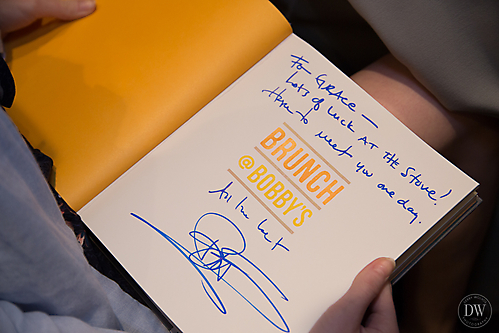 To GRACE —
Lots of Luck AT THE Stove!
Hope to meet you one day.
BRUNCH
@BOBBY'S
All the best
DW